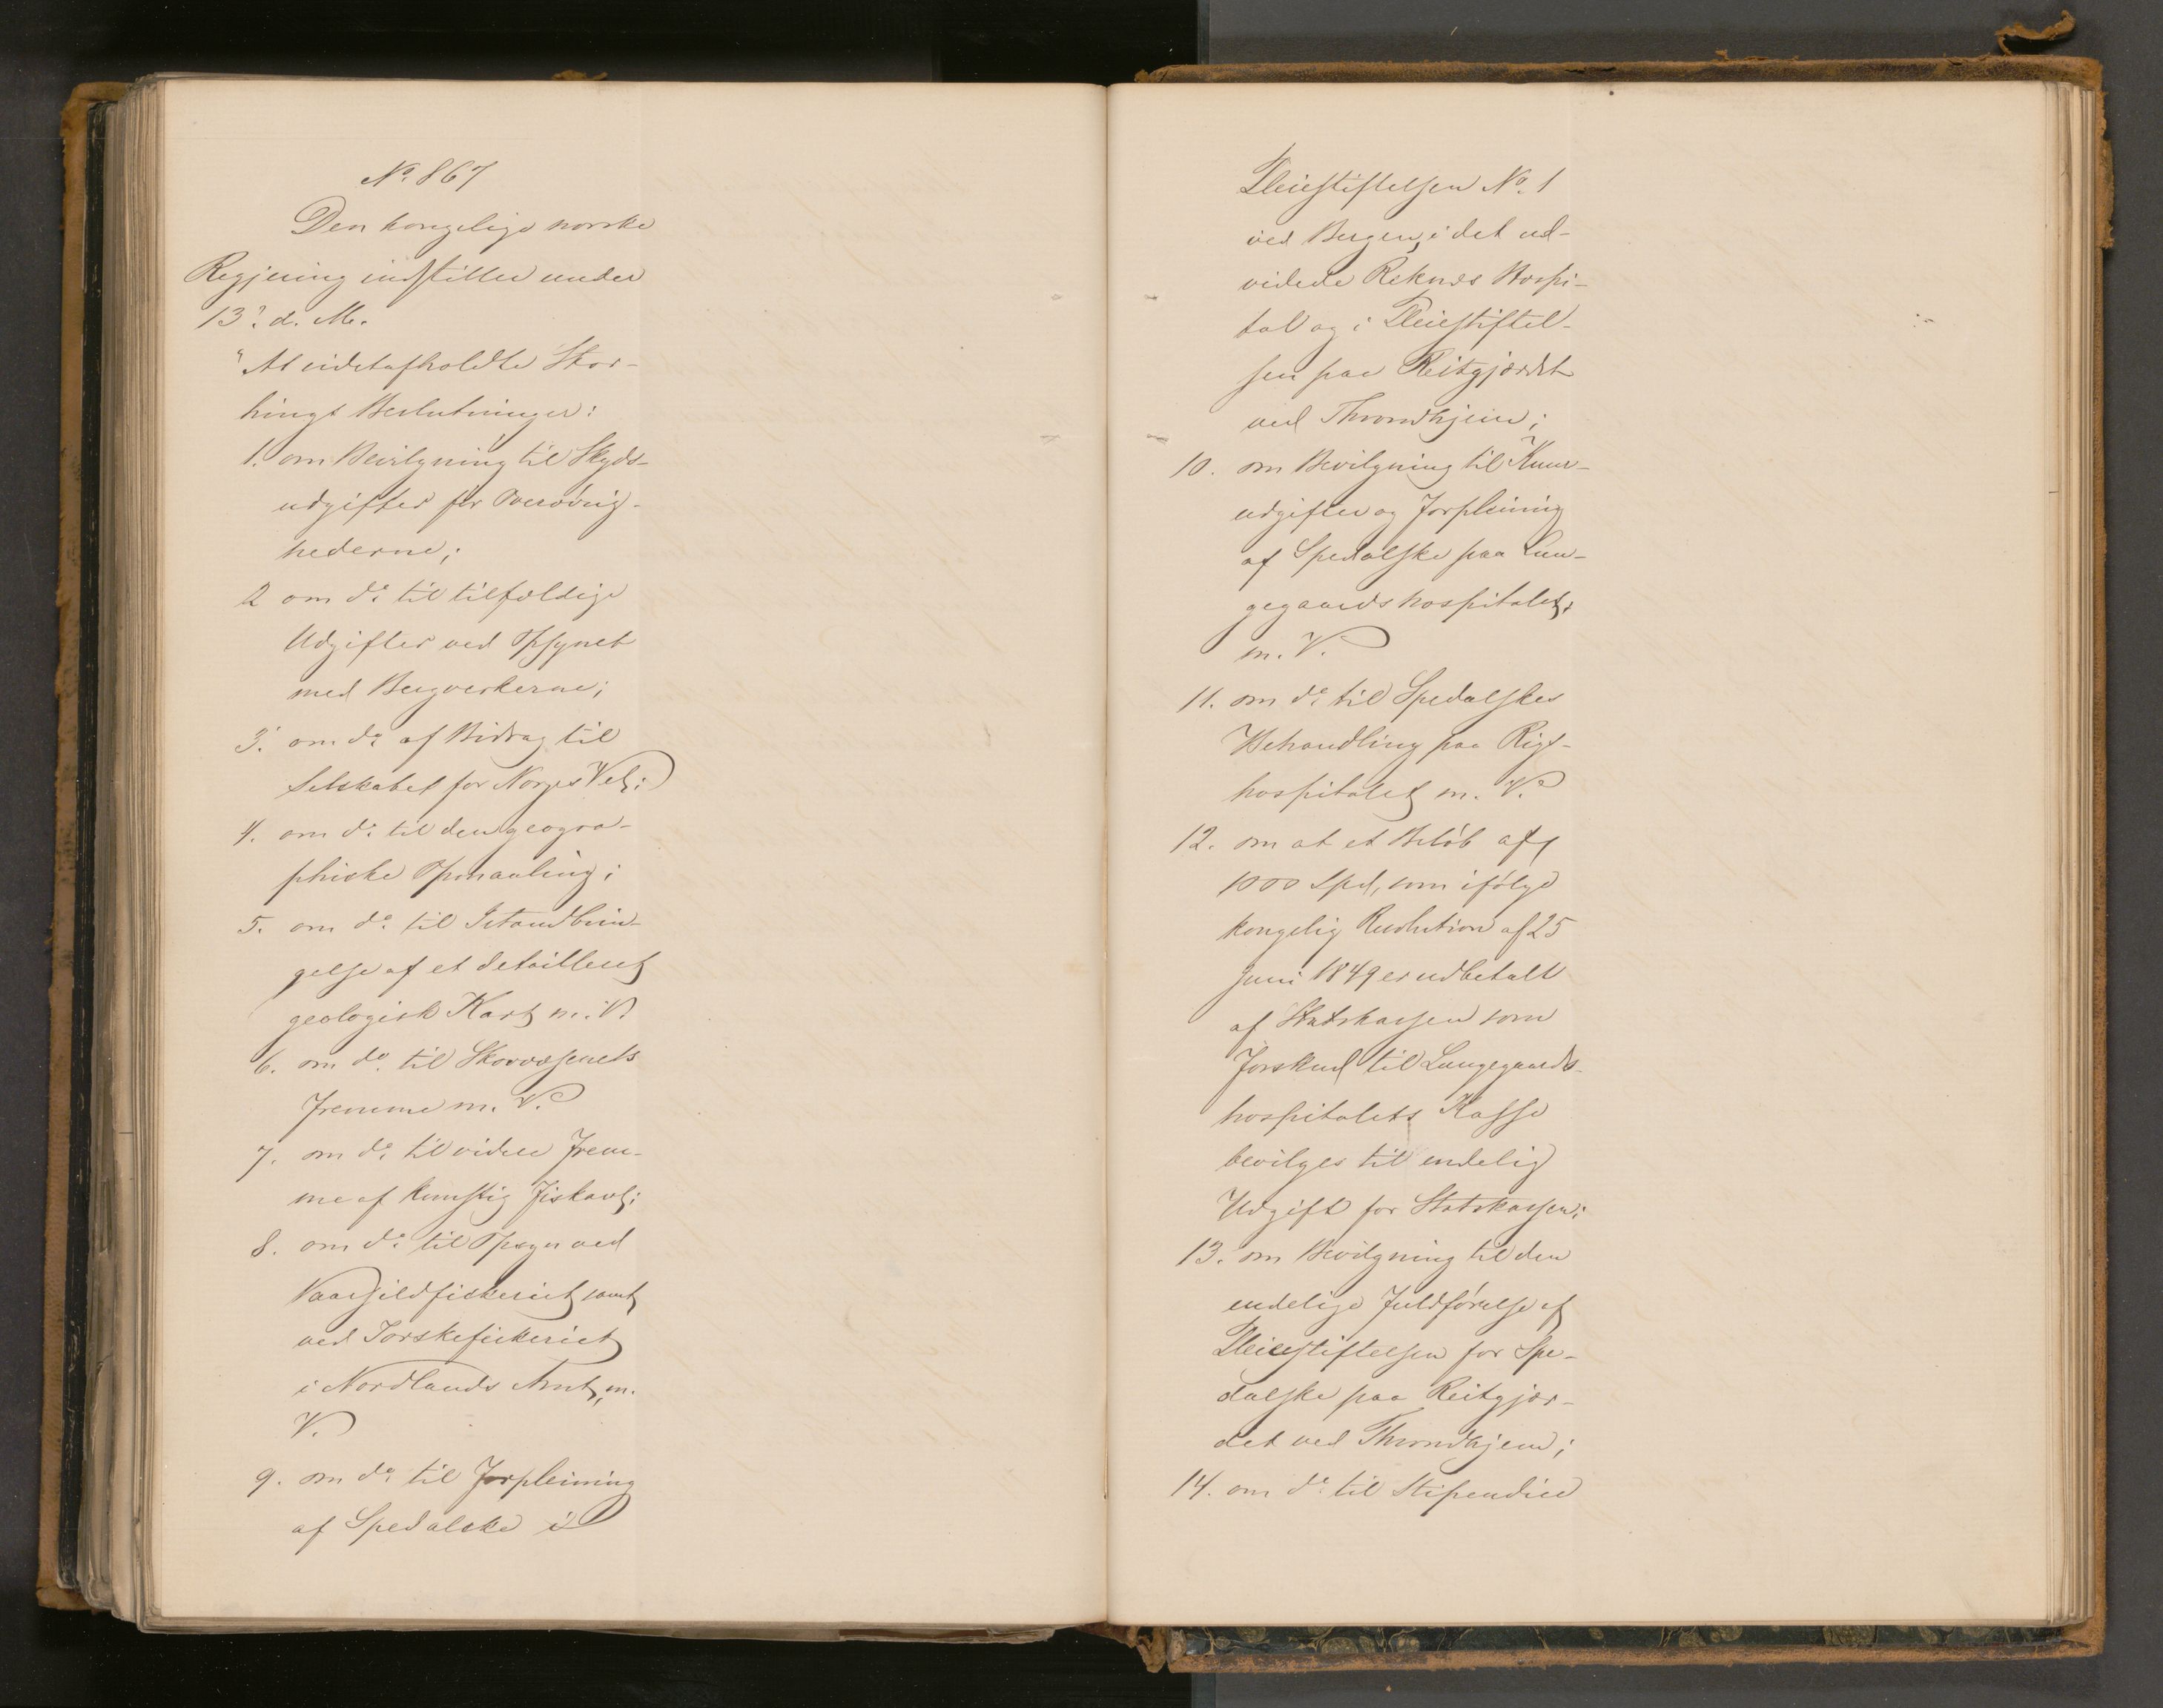 No. 867
Den kongelige norske
Regjering indstiller under
13de d. M.
"At sidstafholdte Stor-
things Beslutninger:
1. om Bevilgning til Skyds-
udgifter for Overøvrig-
hederne;
2 om do. til tilfældige
Udgifter ved Opsynet
med Bergverkerne;
3. om do. af Bidrag til
Selskabet for Norges Vel;
4. om do. til den geogra-
phiske Opmaaling;
5. om do. til Istandbrin-
gelse af et detailleret
geologisk Kart m. V.
6. om do. til Skovvæsenets
Fremme m. V.
7. om do. til videre Frem-
me af kunstig Fiskavl;
8. om do. til Opsyn ved
Vaarsildfiskeriet samt
ved Torskefiskeriet
i Nordlands Amt, m.
V.
9. om do. til Forpleining
af Spedalske i
Pleiestiftelsen No. 1
ved Bergen, i det ud-
videde Reknæs Hospi-
tal og i Pleiestiftel-
sen paa Reitgjærdet
ved Throndhjem;
10. om Bevilgning til Kuur-
udgifter og Forpleining
af Spedalske paa Lun-
gegaardshospitalet,
m. V.
11. om do. til Spedalskes
Behandling paa Rigs-
hospitalet m. V.
12. om at et Beløb af
1000 Spd, som ifølge
kongelig Resolution af 25
Juni 1849 er udbetalt
af Statskassen som
Forskud til Lungegaards-
hospitalets Kasse
bevilges til endelig
Udgift for Statskassen;
13. om Bevilgning til den
endelige Fuldførelse af
Pleiestiftelsen for Spe-
dalske paa Reitgjær-
det ved Throndhjem;
14. om do. til Stipendier